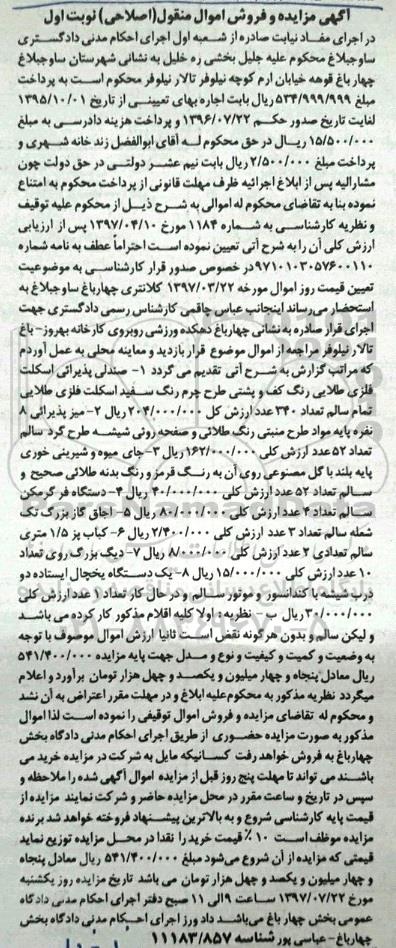 آگهی مزایده و فروش اموال منقول(اصلاحی) نوبت اول
در اجرای مفاد نیابت صادره از شعبه اول اجرای احکام مدنی دادگستری
ساوجبلاغ محکوم علیه جلیل بخشی ره خلیل به نشانی شهرستان ساوجبلاغ
چهارباغ قوهه خیابان ارم کوچه نیلوفر تالار نیلوفر محکوم است به پرداخت
مبلغ ۵۳۴/۹۹۹/۹۹۹ ریال بابت اجاره بهای تعیینی از تاریخ ۱۳۹۵/۱۰/۰۱
لغایت تاریخ صدور حکم ۱۳۹۶/۰۷/۲۲ و پرداخت هزینه دادرسی به مبلغ
۱۵/۵۰۰/۰۰۰ ریال در حق محکوم له آقای ابوالفضل زند خانه شهری و
پرداخت مبلغ ۲/۵۰۰/۰۰۰ ریال بابت نیم عشر دولتی در حق دولت چون
مشارالیه پس از ابلاغ اجرائیه ظرف مهلت قانونی از پرداخت محکوم به امتناع
نموده بنا به تقاضای محکوم له اموالی به شرح ذیل از محکوم علیه توقیف
و نظریه کارشناسی به شماره ۱۱۸۴ مورخ ۱۳۹۷/۰۴/۱۰ پس از ارزیابی
ارزش کلی آن را به شرح آتی تعیین نموده است احتراماً عطف به نامه شماره
۹۷۱۰۱۰۳۰۵۷۶۰۰۱۱۰ در خصوص صدور قرار کارشناسی به موضوعیت
تعیین قیمت روز اموال مورخه ۱۳۹۷/۰۳/۲۲ کلانتری چهارباغ ساوجبلاغ به
استحضار می‌رساند اینجانب عباس چاقمی کارشناس رسمی دادگستری جهت
اجرای قرار صادره به نشانی چهارباغ دهکده ورزشی روبروی کارخانه بهروز- باغ
تالار نیلوفر مراجعه از اموال موضوع قرار بازدید و معاینه محلی به عمل آوردم
که مراتب گزارش به شرح آتی تقدیم می گردد ۱- صندلی پذیرائی اسکلت
فلزی طلایی رنگ کف و پشتی طرح چرم رنگ سفید اسکلت فلزی طلایی
تمام سالم تعداد ۳۴۰ عدد ارزش کل ۲۰۴/۰۰۰/۰۰۰ ریال ۲- میز پذیرائی ۸
نفره پایه مواد طرح منبتی رنگ طلائی و صفحه روئی شیشه طرح گرد سالم
تعداد ۵۲ عدد ارزش کلی ۱۶۲/۰۰۰/۰۰۰ ریال ۳-جای میوه و شیرینی خوری
پایه بلند با گل مصنوعی روی آن به رنگ قرمز و رنگ بدنه طلائی صحیح و
سالم تعداد ۵۲ عدد ارزش کلی ۴۰/۰۰۰/۰۰۰ ریال ۴- دستگاه فر گرمکن
سالم تعداد ۴ عدد ارزش کلی ۸۰/۰۰۰/۰۰۰ ریال ۵- اجاق گاز بزرگ تک
شعله سالم تعداد ۳ عدد ارزش کلی ۲/۴۰۰/۰۰۰ ریال ۶- کباب پز ۱/۵ متری
سالم تعدادی ۲ عدد ارزش کلی ۸/۰۰۰/۰۰۰ ریال ۷- دیگ بزرگ روی تعداد
۱۰ عدد ارزش کلی ۱۵/۰۰۰/۰۰۰ ریال ۸- یک دستگاه یخچال ایستاده دو
درب شیشه با کندانسور و موتور سالم و در حال کار تعداد ۱ عدد ارزش کلی
۳۰/۰۰۰/۰۰۰ ریال ب - نظریه: اولا کلیه اقلام مذکور کار کرده می باشد
و لیکن سالم و بدون هرگونه نقص است ثانیا ارزش اموال موصوف با توجه
به وضعیت و کمیت و کیفیت و نوع و مدل جهت پایه مزایده ۵۴۱/۴۰۰/۰۰۰
ریال معادل پنجاه و چهار میلیون و یکصد و چهل هزار تومان برآورد و اعلام
میگردد نظریه مذکور به محکوم علیه ابلاغ و در مهلت مقرر اعتراض به آن نشد
و محکوم له تقاضای مزایده و فروش اموال توقیفی را نموده است لذا اموال
مذکور به صورت مزایده حضوری از طریق اجرای احکام مدنی دادگاه بخش
چهارباغ به فروش خواهد رفت کسانیکه مایل به شرکت در مزایده خرید می
باشند می تواند تا مهلت پنج روز قبل از مزایده اموال آگهی شده را ملاحظه و
سپس در تاریخ و ساعت مقرر در محل مزایده حاضر و شرکت نمایند مزایده از
قیمت پایه کارشناسی شروع و به بالاترین پیشنهاد فروخته خواهد شد برنده
مزایده موظف است ۱۰٪ قیمت خرید را نقدا در محل مزایده تودیع نماید
قیمتی که مزایده از آن شروع می‌شود مبلغ ۵۴۱/۴۰۰/۰۰۰ ریال معادل پنجاه
و چهار میلیون و یکصد و چهل هزار تومان می باشد تاریخ مزایده روز یکشنبه
مورخ ۱۳۹۷/۰۷/۲۲ از ساعت ۹ الی ۱۱ صبح دفتر اجرای احکام مدنی دادگاه
عمومی بخش چهار باغ می‌باشد داد ورز اجرای احکام مدنی دادگاه بخش
چهارباغ - عباسی پور شناسه ۱۱۱۸۳/۸۵۷